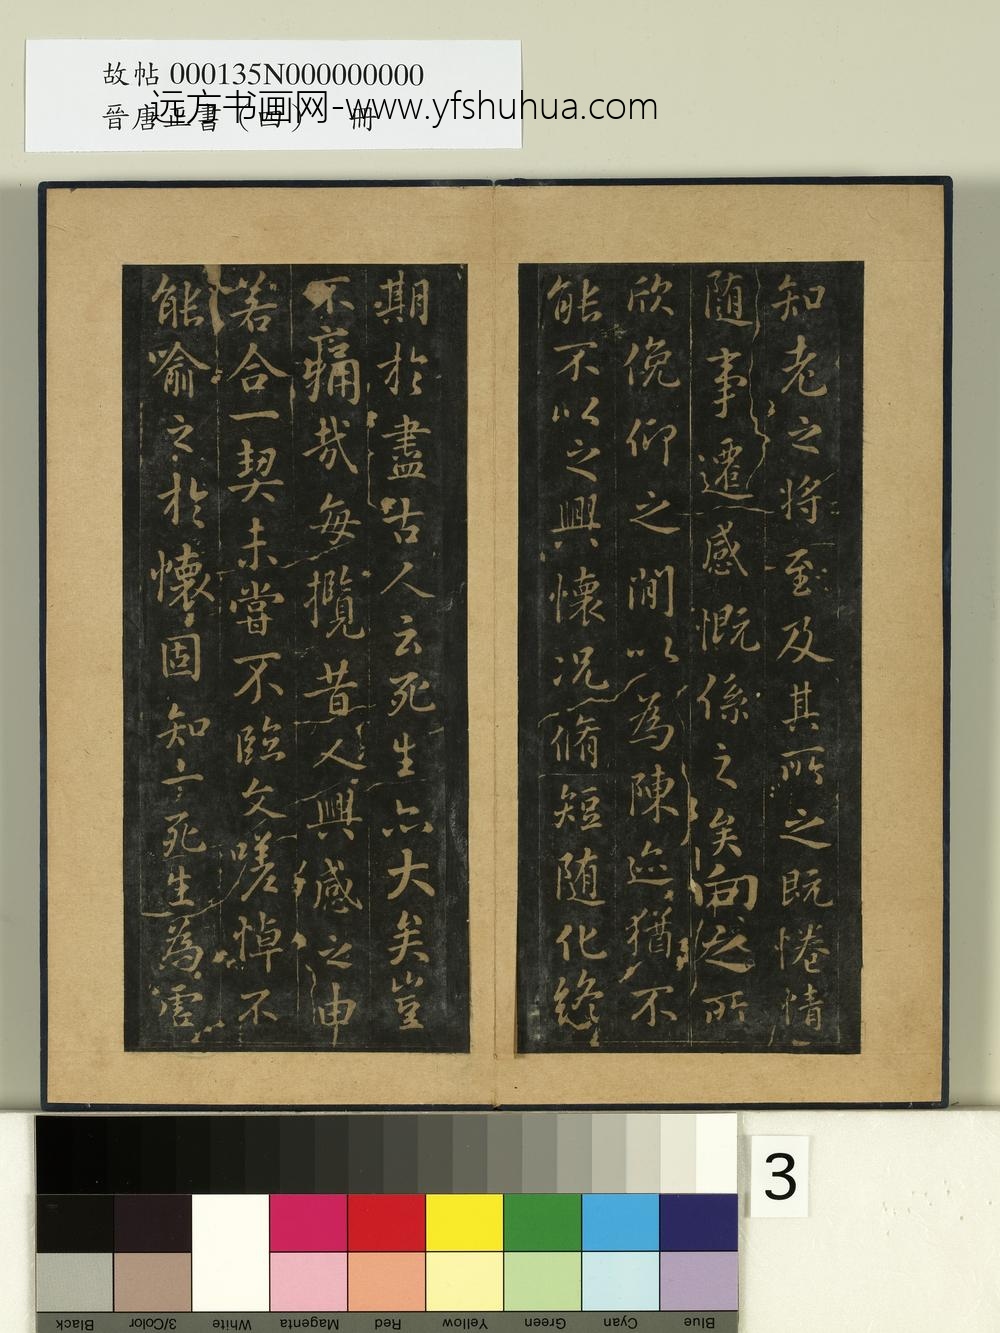 故帖 000135N000000000
晉唐正書（四） 冊
远方书画网-www.yfshuhua.com
知老之将至及其所之既惓情
随事遷感慨係之矣向之所
欣俛仰之間以為陳迹猶不
能不以之興懷况脩短随化終
期於盡古人云死生亦大矣豈
不痛哉每攬昔人興感之由
若合一契未嘗不臨文嗟悼不
能喻之於懷固知一死生為虛
3
Black
3/Color
White
Magenta
Red
Yellow
Green
Cyan
Blue